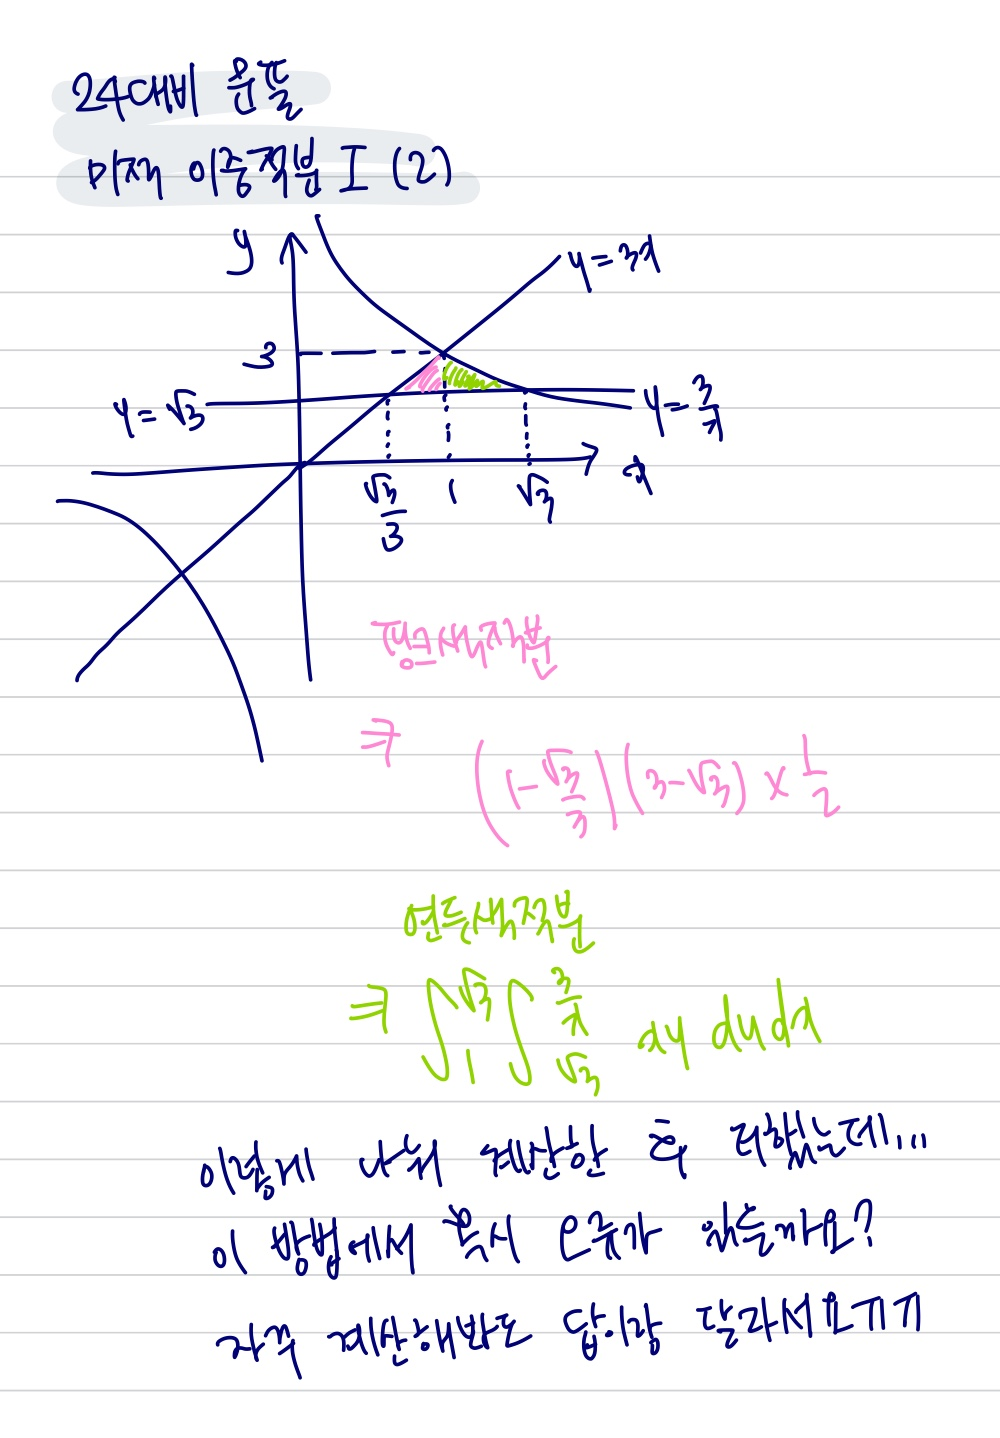 24대비 운뜰
미적 이중적분 I (2)
y
y=3x
3
y=√3
y=3/x
x
√3/3
1
√3
핑크색적분
⇒ (1-√3/3)(3-√3)×1/2
연두색적분
⇒ ∫₁^√3 ∫_√3^(3/x) xy dydx
이렇게 나눠 계산한 후 더했는데...
이 방법에서 혹시 오류가 있을까요?
자꾸 계산해봐도 답이랑 달라서요ㄱㄱ